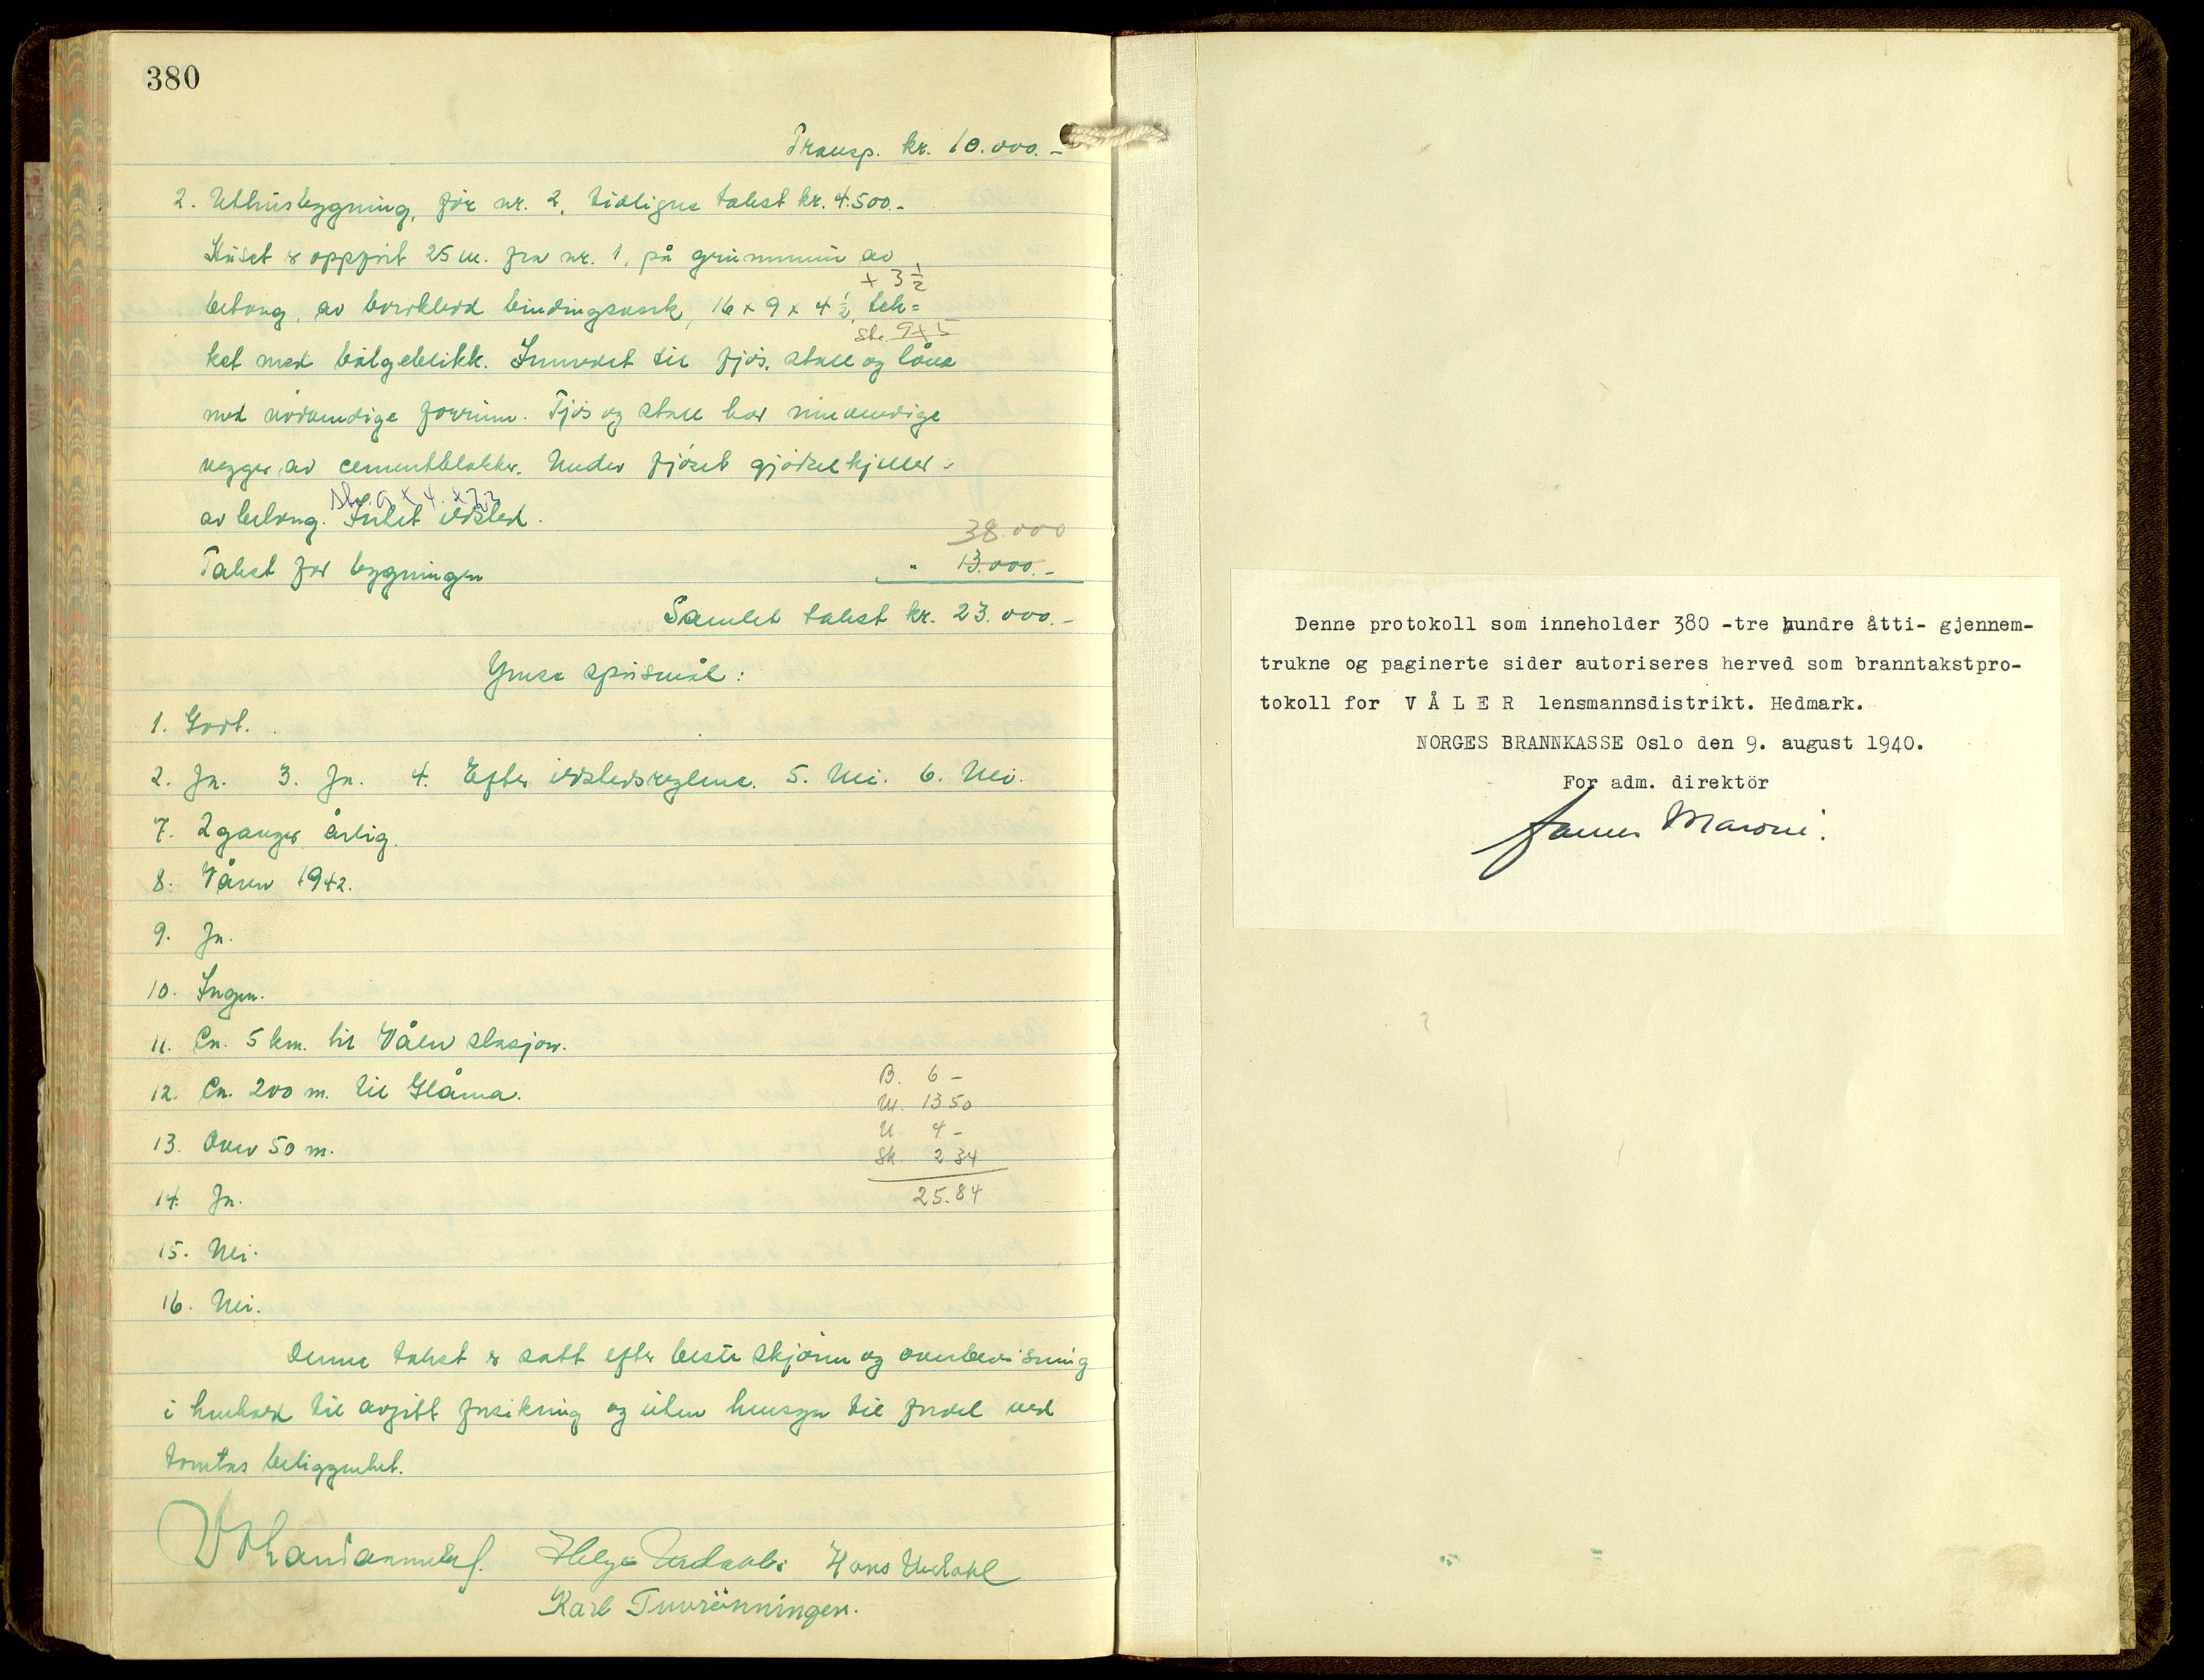 380
Transp. kr. 10.000.-
2. Uthusbygning, før nr. 2, tidligere takst kr. 4.500.-
Huset er oppført 25 m. fra nr. 1, på grunnmur av
+ 3 ½
betong, av bordkledd bindingsverk, 16 x 9 x 4 ½, tek=
9x5
ket med bølgeblikk. Innredet til fjøs, stall og låve
med nødvendige forrum. Fjøs og stall har innvendige
vegger av cementblokker. Under fjøset gjødselkjeller
9 x 4
av betong. Intet ildsted.
38.000
Takst for bygningen " 13.000.-
Samlet takst kr. 23.000.-
Ymse spørsmål:
1. Godt.
2. Ja. 3. Ja. 4. Efter ildstedsreglene. 5. Nei. 6. Nei.
7. 2 ganger årlig.
8. Våren 1942.
9. Ja.
10. Ingen.
11. Ca. 5 km. til Våler stasjon.
12. Ca. 200 m. til Glåma.
13. Over 50 m.
14. Ja.
15. Nei.
16. Nei.
B. 6 -
U. 13.50
U. 4 -
Sk. 2 34
25.84
Denne takst er satt efter beste skjønn og overbevisning
i henhold til avgitt forsikring og uten hensyn til fordel ved
tomtens beliggenhet.
Helge Hans
Karl Tuvrönningen.
Denne protokoll som inneholder 380 -tre hundre åtti- gjennem-
trukne og paginerte sider autoriseres herved som branntakstpro-
tokoll for V Å L E R lensmannsdistrikt. Hedmark.
NORGES BRANNKASSE Oslo den 9. august 1940.
For adm. direktör
James Maroni.